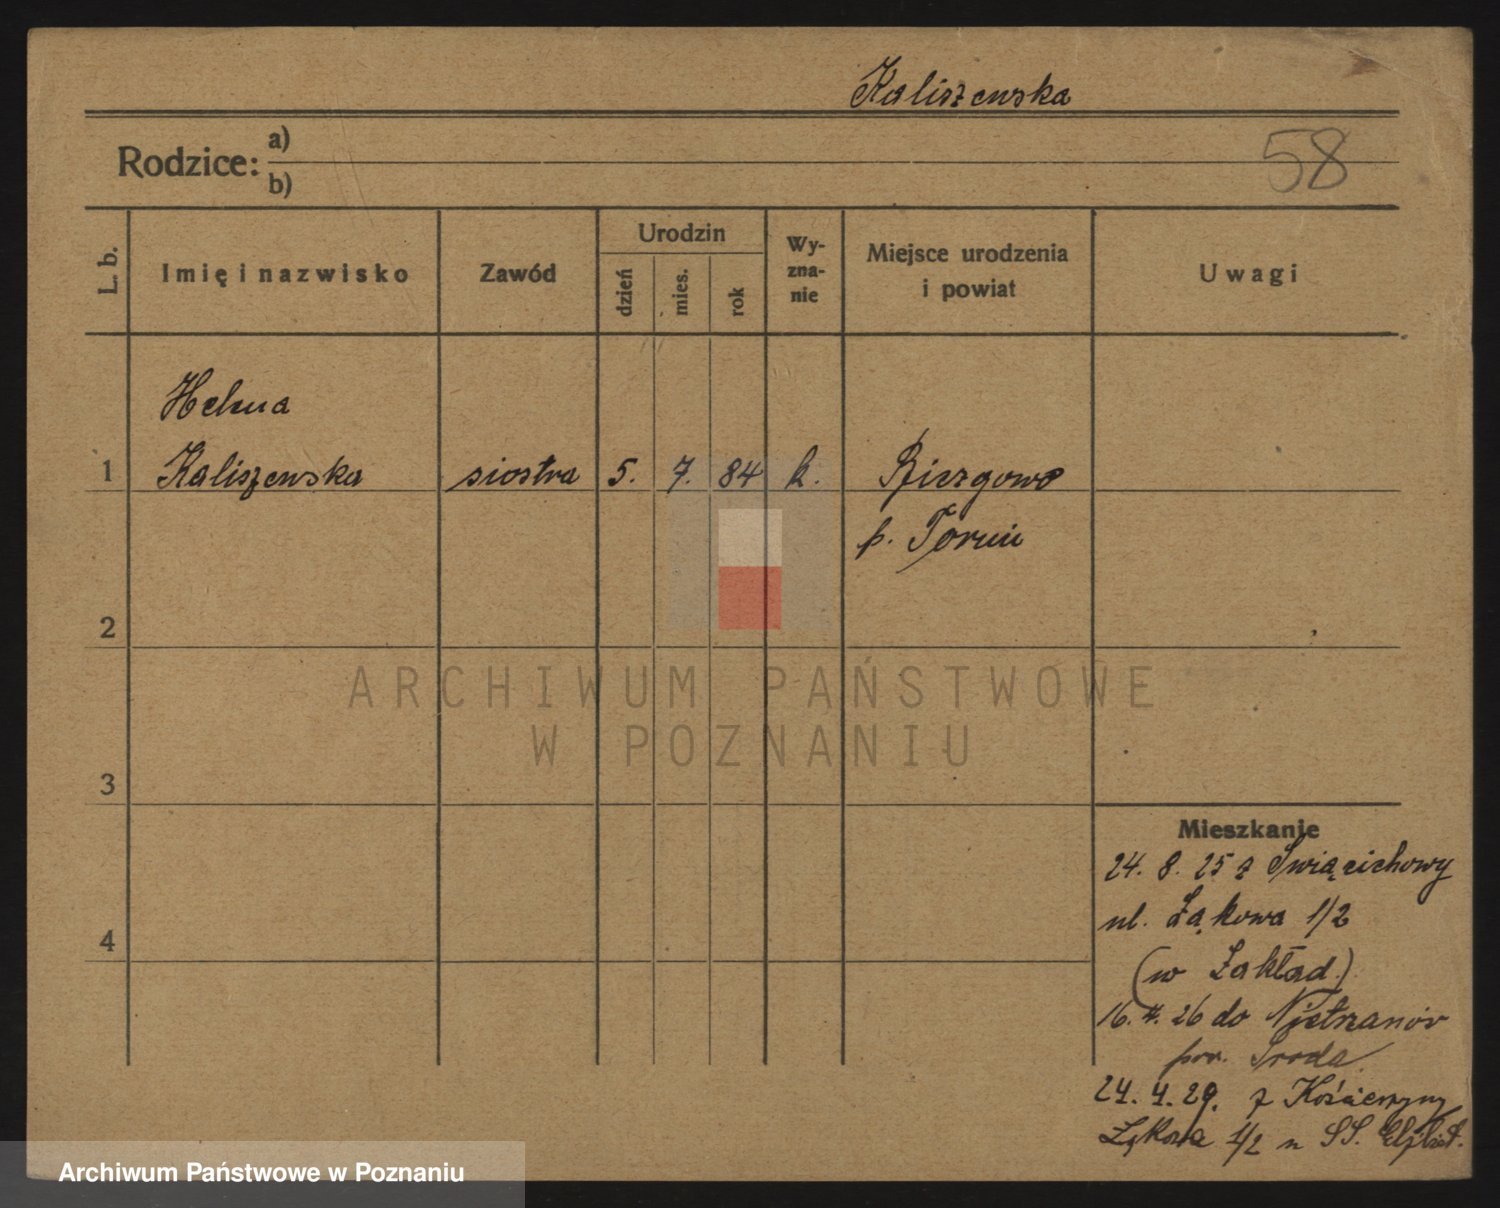 Kaliszewska
Rodzice: a)
b)
58
L. b.
Imię i nazwisko
Zawód
Urodzin
dzień
mies.
rok
Wy-
zna-
nie
Miejsce urodzenia
i powiat
Uwagi
Helena
1 Kaliszewska siostra 5. 7. 84 k. Bierzgowo
p. Toruń
2
3
4
ARCHIWUM PAŃSTWOWE
W POZNANIU
Mieszkanie
24. 8. 25 z Święcichowy
ul. Łąkowa 1/2
(w Zakład.)
26 do Nietrzanów
pow. Środa
24. 4. 29. z Kościerzyny
Łąkowa 1/2 u SS. Elżbiet.
Archiwum Państwowe w Poznaniu